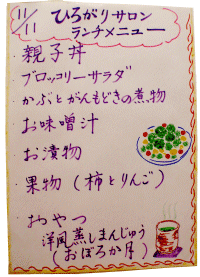 11/11
ひろがりサロン
ランチメニュー
・親子丼
・ブロッコリーサラダ
・かぶとがんもどきの煮物
・お味噌汁
・お漬物
・果物（柿とりんご）
・おやつ
洋風蒸しまんじゅう
（おぼろか月）